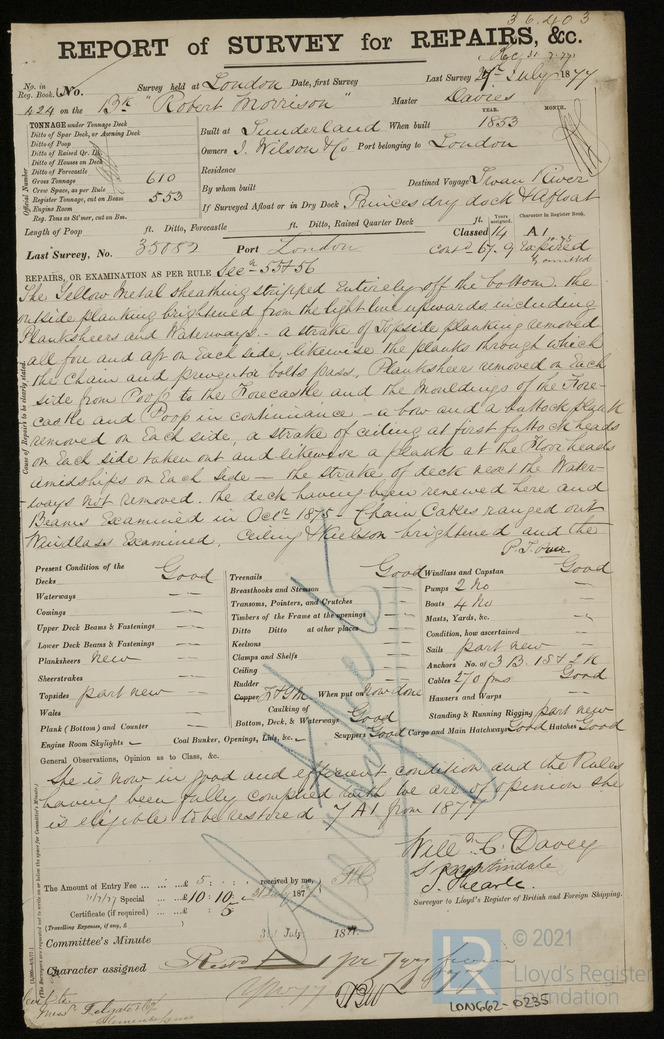 36403
REPORT of SURVEY for REPAIRS, &c.
Rec 31.7.77
No. in Reg. Book. No. Survey held at London Date, first Survey Last Survey 27th July 1877
424 on the Bk "Robert Morrison" Master Davies
TONNAGE under Tonnage Deck
Ditto of Spar Deck, or Awning Deck
Ditto of Poop
Ditto of Raised Qr. Dk
Ditto of Houses on Deck
Ditto of Forecastle
Gross Tonnage 610
Crew Space, as per Rule
Register Tonnage, cut on Beam 553
Engine Room
Reg. Tons as St'mer, cut on Bm.
Official Number
YEAR. MONTH.
Built at Sunderland When built 1853
Owners J. Wilson & Co Port belonging to London
Residence
By whom built Destined Voyage Swan River
If Surveyed Afloat or in Dry Dock Princes dry dock & Afloat
Length of Poop ft. Ditto, Forecastle ft. Ditto, Raised Quarter Deck ft.
Years assigned. Character in Register Book.
Classed 14 A1
Last Survey, No. 35082 Port London Contd 67. 9 Expired 10.75
REPAIRS, OR EXAMINATION AS PER RULE Secn 55 & 56
Cause of Repairs to be clearly stated.
The Yellow Metal sheathing stripped Entirely off the bottom. the
outside planking brightened from the light line upwards, including
Planksheers and Waterways - a strake of Topside planking removed
all fore and aft on Each side, likewise the planks through which
the Chain and preventer bolts pass. Planksheer removed on Each
side from Poop to the Forecastle and the Mouldings of the Fore-
castle and Poop in continuance - a bow and a buttock plank
removed on Each side, a strake of ceiling at first futtock heads
on Each side taken out and likewise a plank at the Floor heads
amidships on Each side - the strake of deck next the Water-
ways not removed. the deck having been renewed here and
Beams Examined in Octr 1875 - Chain Cables ranged out
Windlass Examined. Ceiling & Keelson brightened and the
P.T. over
Present Condition of the
Decks Good
Waterways
Comings
Upper Deck Beams & Fastenings
Lower Deck Beams & Fastenings
Planksheers New
Sheerstrakes
Topsides part new
Wales
Plank (Bottom) and Counter
Engine Room Skylights
Treenails Good
Breasthooks and Stemson
Transoms, Pointers, and Crutches
Timbers of the Frame at the openings
Ditto Ditto at other places
Keelsons
Clamps and Shelfs
Ceiling
Rudder
Copper F & YM When put on now done
Caulking of
Bottom, Deck, & Waterways Good
Coal Bunker, Openings, Lids, &c. Scuppers Good Cargo and Main Hatchways Good Hatches Good
Windlass and Capstan Good
Pumps 2 No
Boats 4 No
Masts, Yards, &c.
Condition, how ascertained
Sails part new
Anchors No. of 3 B. 1S & 2 K
Cables 270 fms Good
Hawsers and Warps
Standing & Running Rigging part new
General Observations, Opinion as to Class, &c.
She is now in good and efficient condition and the Rules
having been fully complied with we are of opinion she
is eligible to be restored 7 A1 from 1877
Willm C. Davey
S. P. Martindale
J. Thearle.
Surveyor to Lloyd's Register of British and Foreign Shipping.
The Amount of Entry Fee ... £ 5 : : received by me,
Special ... £10 : 10 : 31 July 1877
Certificate (if required) ... : 5
(Travelling Expenses, if any, £ )
Committee's Minute 31st July 1877.
Character assigned Restd A 1 for 7 yrs from
1877
© 2021
LR
Lloyd's Register
Foundation
LON662-0235